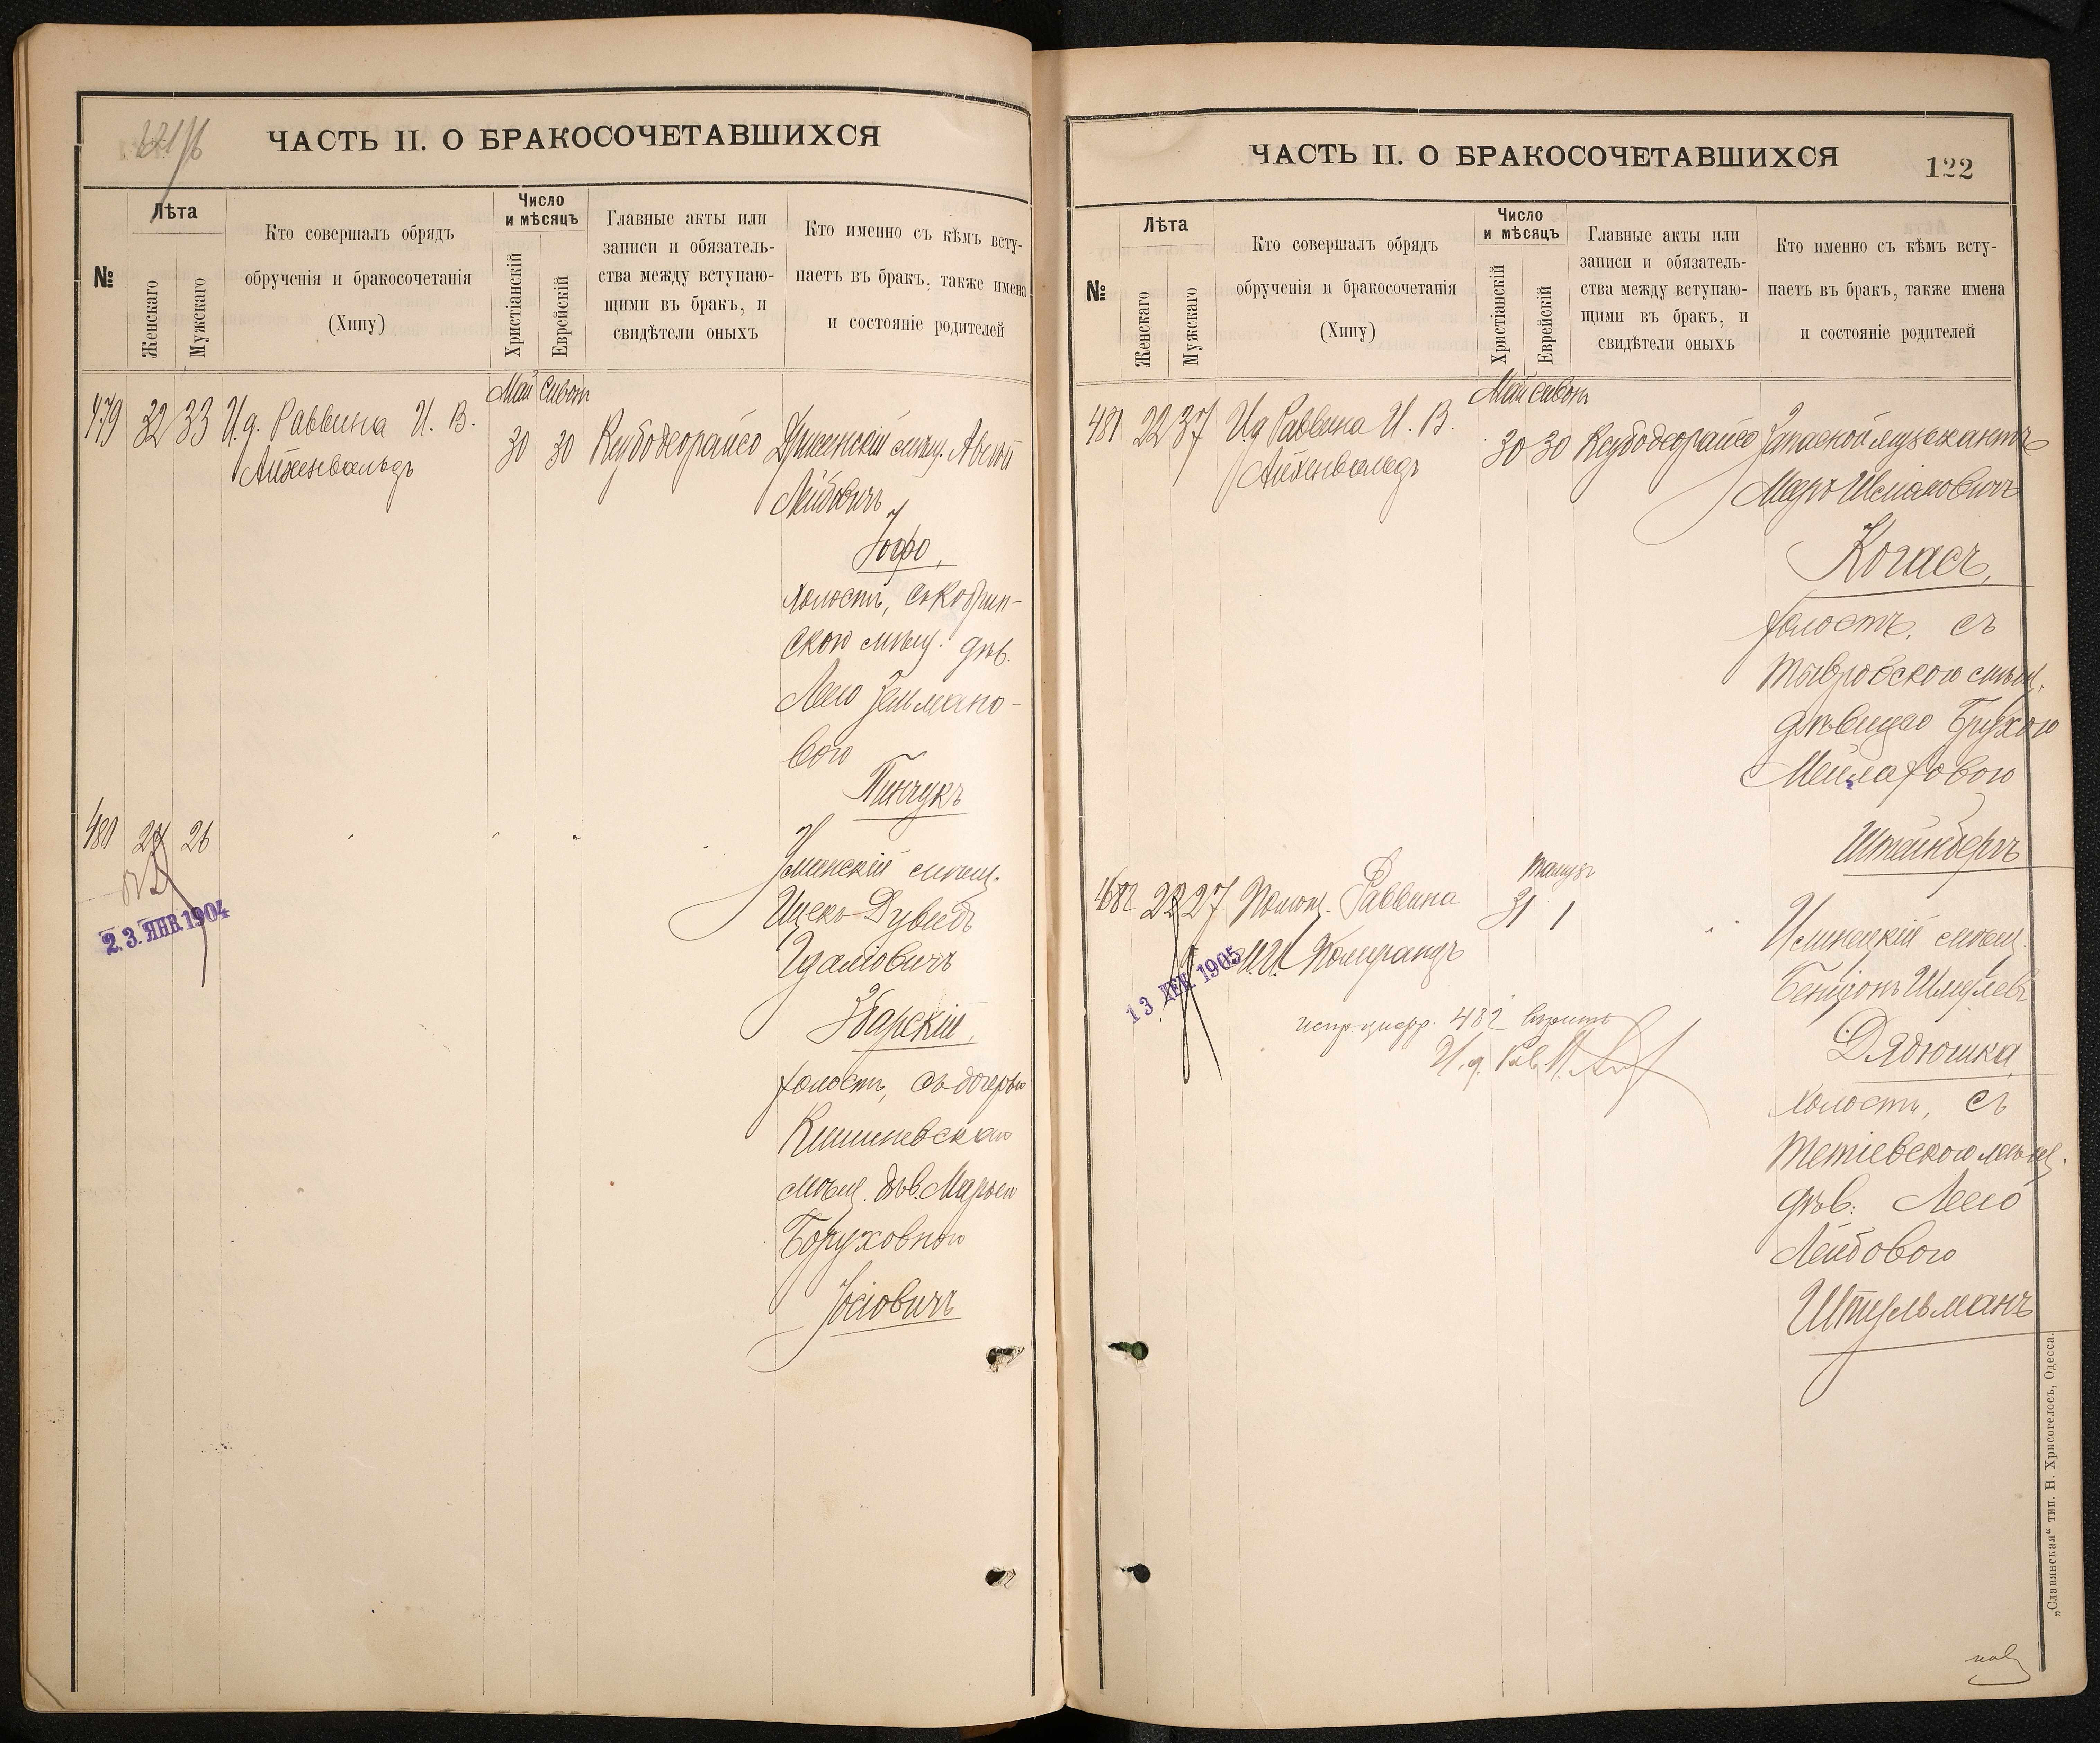 ЧАСТЬ II. О БРАКОСОЧЕТАВШИХСЯ
№
Лѣта
Женскаго
Мужскаго
Кто совершалъ обрядъ
обрученія и бракосочетанія
(Хипу)
Число
и мѣсяцъ
Христіанскій
Еврейскій
Главные акты или
записи и обязатель-
ства между вступаю-
щими въ бракъ, и
свидѣтели оныхъ
Кто именно съ кѣмъ всту-
паетъ въ бракъ, также имена
и состояніе родителей
Май Сивон
479 32 33 И.д. Раввина И. В.
Айхенвальдъ
30 30
мѣщ.
Лейбовичъ
Іофе,
холостъ, съ Кобрин-
скою мѣщ. дѣв.
Леею Зельмано-
вою
Пинчукъ
480 24 26
23. ЯНВ 1904
Уманскій мѣщ.
Ицекъ-Дувидъ
Удаліовичъ
Збарскій,
холостъ, съ дочерью
Кишиневскаго
мѣщ. дѣв. Марьею
Боруховною
Іосіовичъ
ЧАСТЬ II. О БРАКОСОЧЕТАВШИХСЯ
122
№
Лѣта
Женскаго
Мужскаго
Кто совершалъ обрядъ
обрученія и бракосочетанія
(Хипу)
Число
и мѣсяцъ
Христіанскій
Еврейскій
Главные акты или
записи и обязатель-
ства между вступаю-
щими въ бракъ, и
свидѣтели оныхъ
Кто именно съ кѣмъ всту-
паетъ въ бракъ, также имена
и состояніе родителей
Май Сивон
481 22 37 И.д. Раввина И. В.
Айхенвальдъ
30 30
Запасной музыкантъ
Мееръ
Когасъ,
холостъ, съ
Тывровскою мѣщ.
дѣвицею Брухою
Мейлаховою
Штейнбергъ
Тамузъ
482 22 27 Помощ. Раввина
31 1
13 ДЕК 1905
Ильинецкій мѣщ.
Бенціонъ Шмулевъ
Дядюшка,
холостъ, съ
Тетіевскою мѣщ.
дѣв. Леею
Лейбовою
Штульманъ
испр. цифр. 482 вѣрить
И. д. Рав.
„Славянская“ тип. Н. Хрисогелосъ, Одесса.